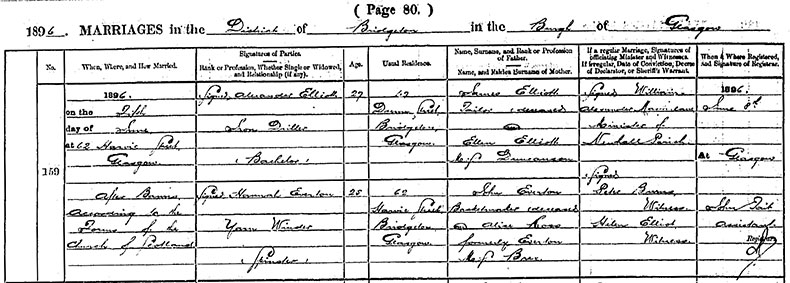 ( Page 80. )
1896. MARRIAGES in the District of Bridgeton in the Burgh of Glasgow
No.
When, Where, and How Married.
Signatures of Parties.
Rank or Profession, Whether Single or Widowed, and Relationship (if any).
Age.
Usual Residence.
Name, Surname, and Rank or Profession of Father.
Name, and Maiden Surname of Mother.
If a regular Marriage, Signatures of officiating Minister and Witnesses.
If irregular, Date of Conviction, Decree of Declarator, or Sheriff's Warrant.
When & Where Registered, and Signature of Registrar.
159
1896.
on the Fifth
day of June
at 62 Harvie Street,
Glasgow
After Banns,
according to the
Forms of the
Church of Scotland
Signed Alexander Elliott
Iron Driller
(Bachelor)
Signed Hannah Everton
Yarn Winder
(Spinster)
27
25
Street,
Bridgeton,
Glasgow
62
Harvie Street
Bridgeton
Glasgow
James Elliott
Tailor deceased
Ellen Elliott
M.S. Duncanson
John Everton
deceased
Alice
formerly Everton
M.S.
Signed William
Alexander
Minister of
Newhall Parish
Signed
Peter Burns,
Witness
Helen Elliot
Witness
1896.
June 8th
At Glasgow
John Tait
Assistant
Registrar